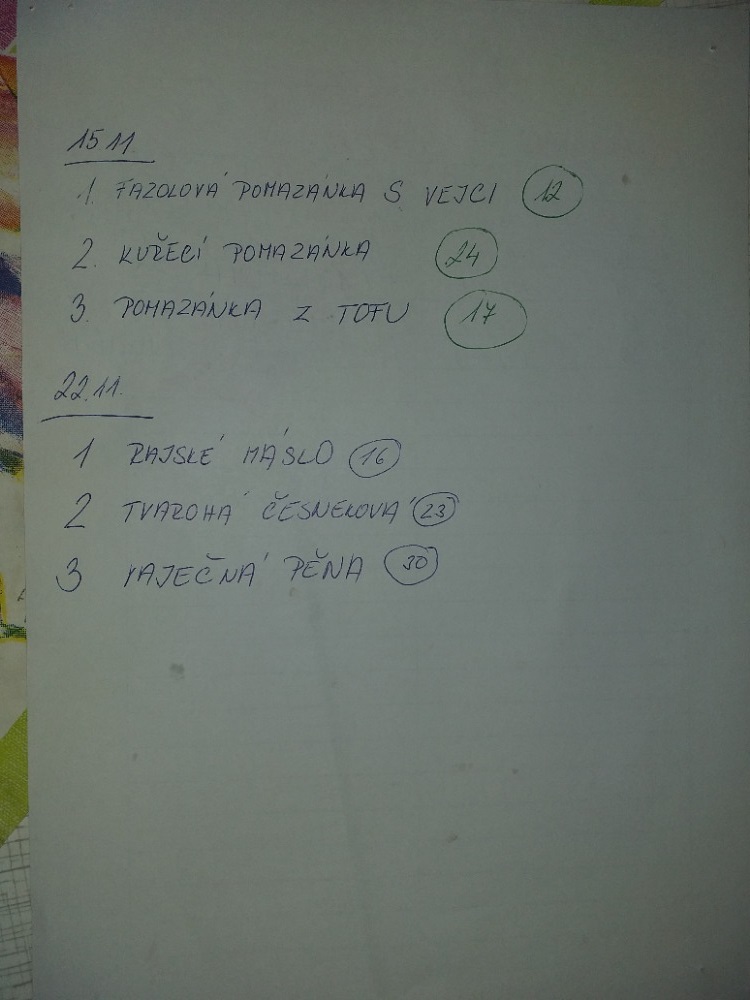 15 11
1. FAZOLOVÁ POMAZÁNKA S VEJCI 12
2. KUŘECÍ POMAZÁNKA 24
3. POMAZÁNKA Z TOFU 17
22.11.
1 RAJSKÉ MÁSLO 16
2 TVAROHÁ ČESNEKOVÁ 23
3 VAJEČNÁ PĚNA 30